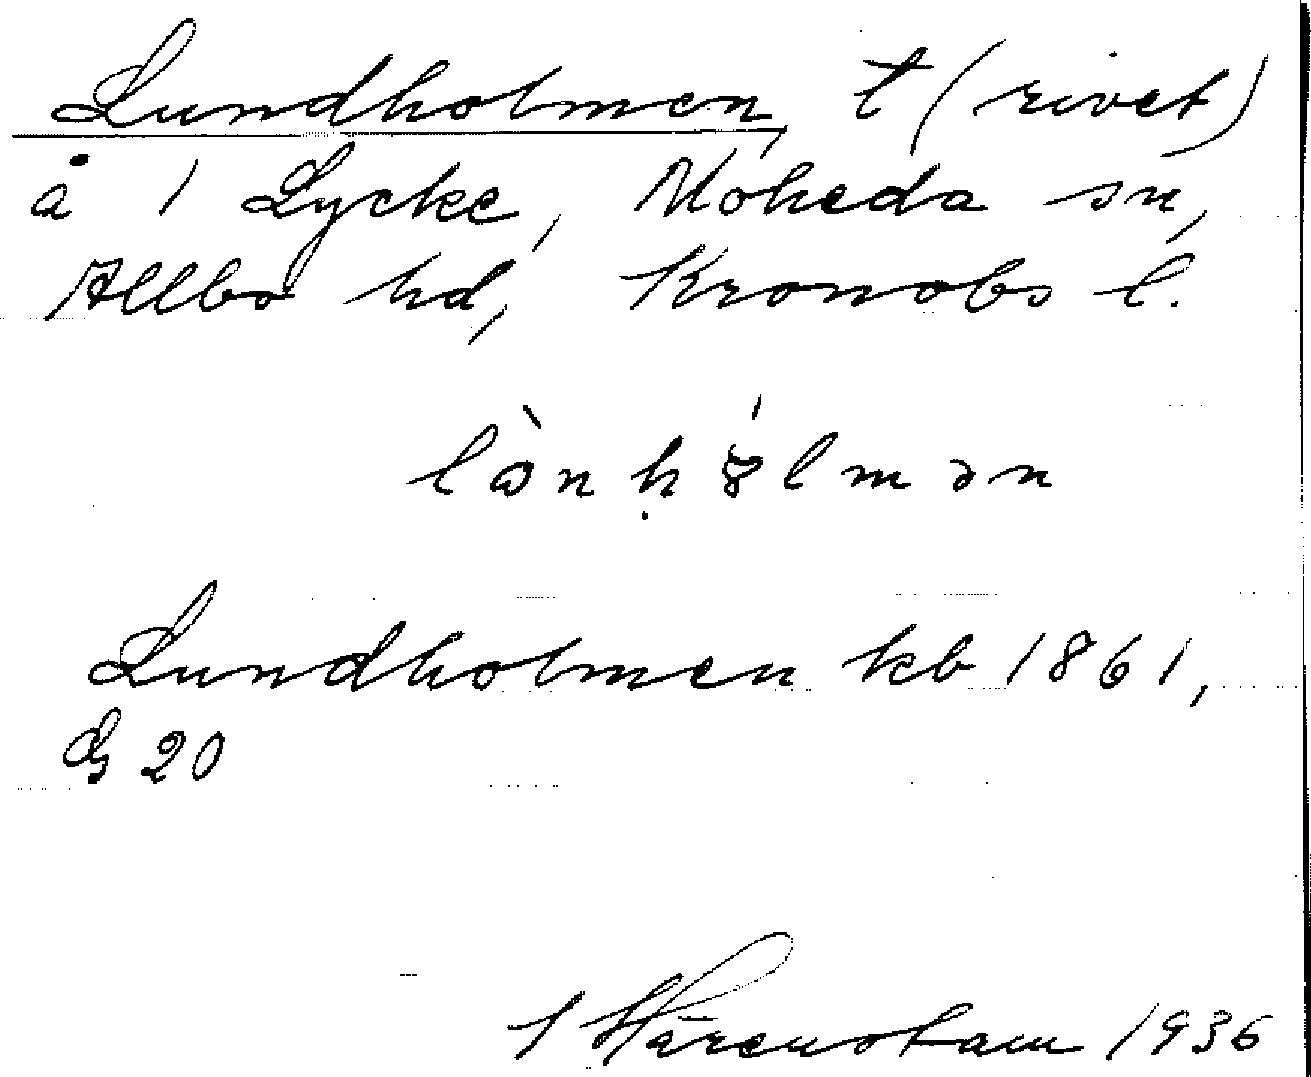 Lundholmen, t (rivet)
å 1 Lycke, Moheda sn,
Allbo hd, Kronobs l.
Lundholmen kb 1861,
G 20
Härenstam 1936